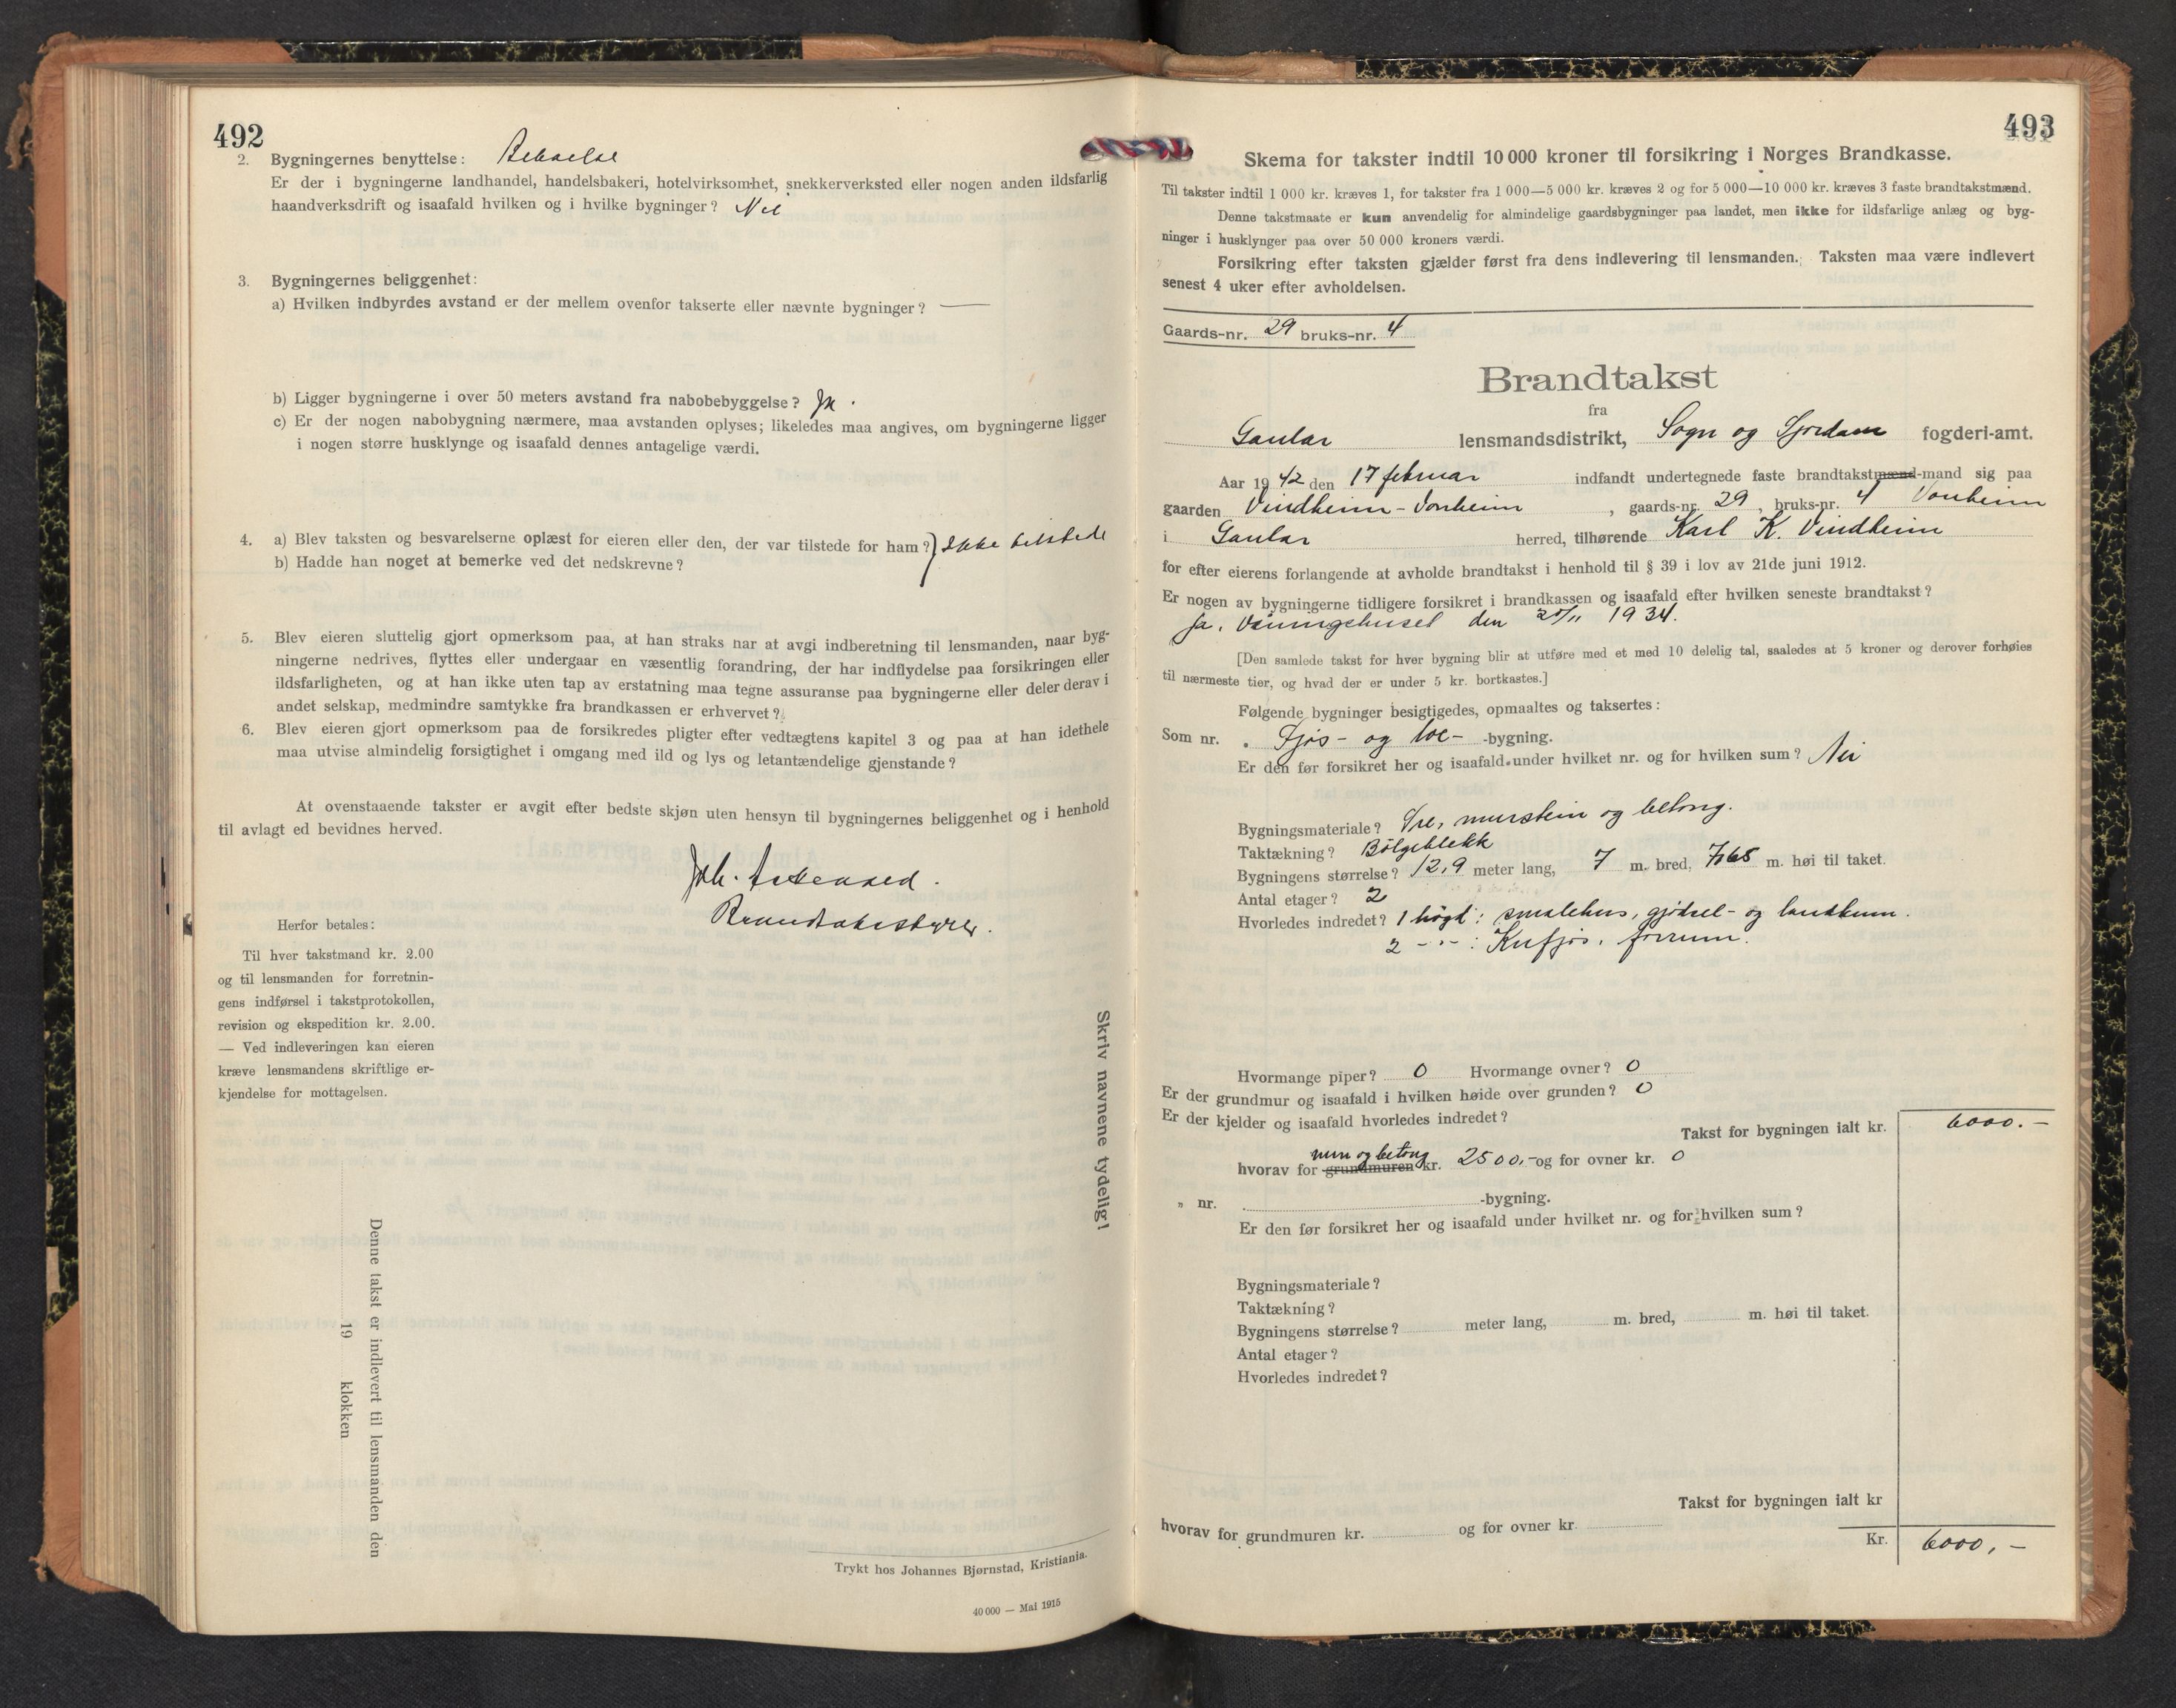 492
2. Bygningernes benyttelse: Beboelse
Er der i bygningerne landhandel, handelsbakeri, hotelvirksomhet, snekkerverksted eller nogen anden ildsfarlig
haandverksdrift og isaafald hvilken og i hvilke bygninger? Nei
3. Bygningernes beliggenhet:
a) Hvilken indbyrdes avstand er der mellem ovenfor takserte eller nævnte bygninger? —
b) Ligger bygningerne i over 50 meters avstand fra nabobebyggelse? Ja.
c) Er der nogen nabobygning nærmere, maa avstanden oplyses; likeledes maa angives, om bygningerne ligger
i nogen større husklynge og isaafald dennes antagelige værdi.
4. a) Blev taksten og besvarelserne oplæst for eieren eller den, der var tilstede for ham? } Ikke tilstede
b) Hadde han noget at bemerke ved det nedskrevne?
5. Blev eieren sluttelig gjort opmerksom paa, at han straks har at avgi indberetning til lensmanden, naar byg-
ningerne nedrives, flyttes eller undergaar en væsentlig forandring, der har indflydelse paa forsikringen eller
ildsfarligheten, og at han ikke uten tap av erstatning maa tegne assuranse paa bygningerne eller deler derav i
andet selskap, medmindre samtykke fra brandkassen er erhvervet?
6. Blev eieren gjort opmerksom paa de forsikredes pligter efter vedtægtens kapitel 3 og paa at han idethele
maa utvise almindelig forsigtighet i omgang med ild og lys og letantændelige gjenstande?
At ovenstaaende takster er avgit efter bedste skjøn uten hensyn til bygningernes beliggenhet og i henhold
til avlagt ed bevidnes herved.
Joh.
Brandtakstbestyrer.
Herfor betales:
Til hver takstmand kr. 2.00
og til lensmanden for forretnin-
gens indførsel i takstprotokollen,
revision og ekspedition kr. 2.00.
— Ved indleveringen kan eieren
kræve lensmandens skriftlige er-
kjendelse for mottagelsen.
Denne takst er indlevert til lensmanden den
19 klokken
Skriv navnene tydelig!
Trykt hos Johannes Bjørnstad, Kristiania.
40 000 — Mai 1915
493
Skema for takster indtil 10 000 kroner til forsikring i Norges Brandkasse.
Til takster indtil 1 000 kr. kræves 1, for takster fra 1 000—5 000 kr. kræves 2 og for 5 000—10 000 kr. kræves 3 faste brandtakstmænd.
Denne takstmaate er kun anvendelig for almindelige gaardsbygninger paa landet, men ikke for ildsfarlige anlæg og byg-
ninger i husklynger paa over 50 000 kroners værdi.
Forsikring efter taksten gjælder først fra dens indlevering til lensmanden. Taksten maa være indlevert
senest 4 uker efter avholdelsen.
Gaards-nr. 29 bruks-nr. 4
Brandtakst
fra
Gaular lensmandsdistrikt, Sogn og Fjordane fogderi-amt.
Aar 1942 den 17 februar indfandt undertegnede faste brandtakstmænd-mand sig paa
gaarden Vindheim - Vonheim, gaards-nr. 29, bruks-nr. 4 Vonheim
i Gaular herred, tilhørende Karl K. Vindheim
for efter eierens forlangende at avholde brandtakst i henhold til § 39 i lov av 21de juni 1912.
Er nogen av bygningerne tidligere forsikret i brandkassen og isaafald efter hvilken seneste brandtakst?
Ja. Våningehuset den /11 1934.
[Den samlede takst for hver bygning blir at utføre med et med 10 delelig tal, saaledes at 5 kroner og derover forhøies
til nærmeste tier, og hvad der er under 5 kr. bortkastes.]
Følgende bygninger besigtigedes, opmaaltes og taksertes:
Som nr. Fjøs- og løe- -bygning.
Er den før forsikret her og isaafald under hvilket nr. og for hvilken sum? Nei
Bygningsmateriale? Tre, murstein og betong.
Taktækning? Bølgeblekk
Bygningens størrelse? 12,9 meter lang, 7 m. bred, 7,65 m. høi til taket.
Antal etager? 2
Hvorledes indredet? 1 høgd: smalehus, gjødsel- og landkum.
2 - " - : Kufjøs, forrum.
Hvormange piper? 0 Hvormange ovner? 0
Er der grundmur og isaafald i hvilken høide over grunden? 0
Er der kjelder og isaafald hvorledes indredet?
Takst for bygningen ialt kr. 6000.-
mur og betong
hvorav for grundmuren kr. 2500,- og for ovner kr. 0
" nr. -bygning.
Er den før forsikret her og isaafald under hvilket nr. og for hvilken sum?
Bygningsmateriale?
Taktækning?
Bygningens størrelse? meter lang, m. bred, m. høi til taket.
Antal etager?
Hvorledes indredet?
Takst for bygningen ialt kr
hvorav for grundmuren kr. og for ovner kr.
Kr. 6000,-